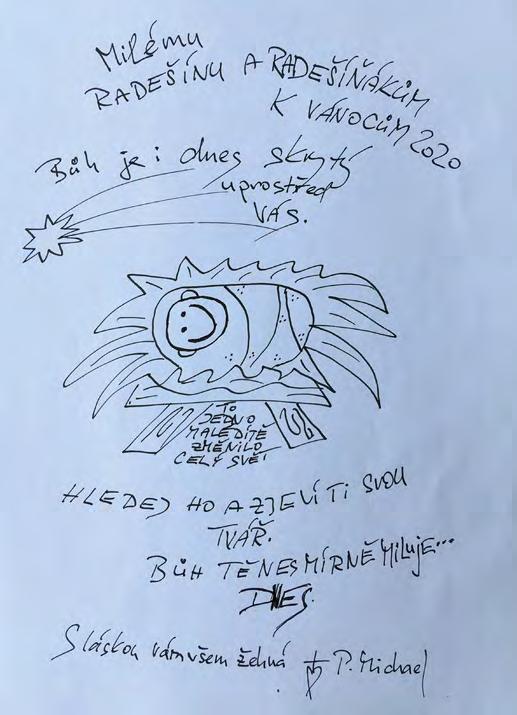 Milému
RADEŠÍNU A RADEŠÍŇÁKŮM
K VÁNOCŮM 2020
Bůh je i dnes skrytý
uprostřed
VÁS.
TO
JEDNO
MALÉ DÍTĚ
ZMĚNILO
CELÝ SVĚT
HLEDEJ HO A ZJEVÍ TI SVOU
TVÁŘ.
BŮH TĚ NESMÍRNĚ MILUJE...
DNES.
S láskou vám všem žehná P. Michael